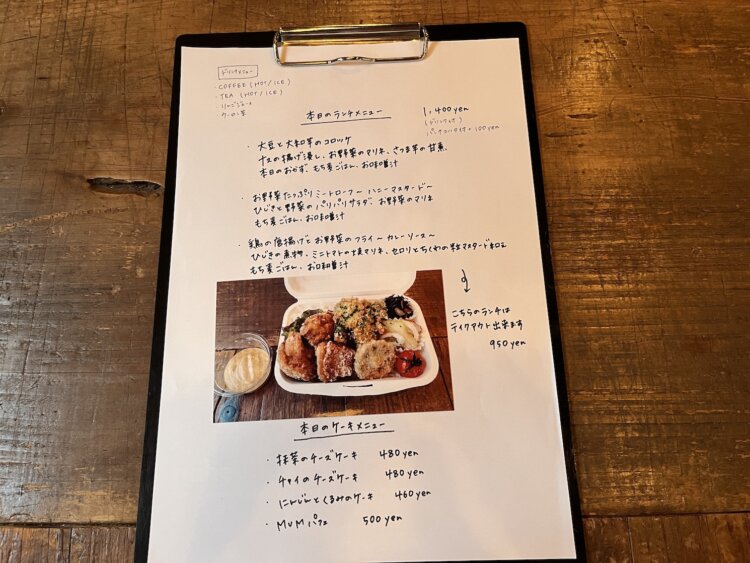 ドリンクメニュー
・COFFEE (HOT/ICE)
・TEA (HOT/ICE)
りんごジュース
ウーロン茶
本日のランチメニュー
1,400yen
(ドリンク付)
+100yen
・大豆と大和芋のコロッケ
ナスの揚げ浸し、お野菜のマリネ、さつま芋の甘煮、
本日のおかず、もち麦ごはん、お味噌汁
・お野菜たっぷりミートローフ〜ハニーマスタード〜
ひじきと野菜のパリパリサラダ、お野菜のマリネ
もち麦ごはん、お味噌汁
・鶏の唐揚げとお野菜のフライ〜カレーソース〜
ひじきの煮物、ミニトマトのマリネ、セロリとちくわの粒マスタード和え
もち麦ごはん、お味噌汁
こちらのランチは
テイクアウト出来ます
950yen
本日のケーキメニュー
・抹茶のチーズケーキ 480yen
・チャイのチーズケーキ 480yen
・にんじんとくるみのケーキ 460yen
・MUMパフェ 500yen